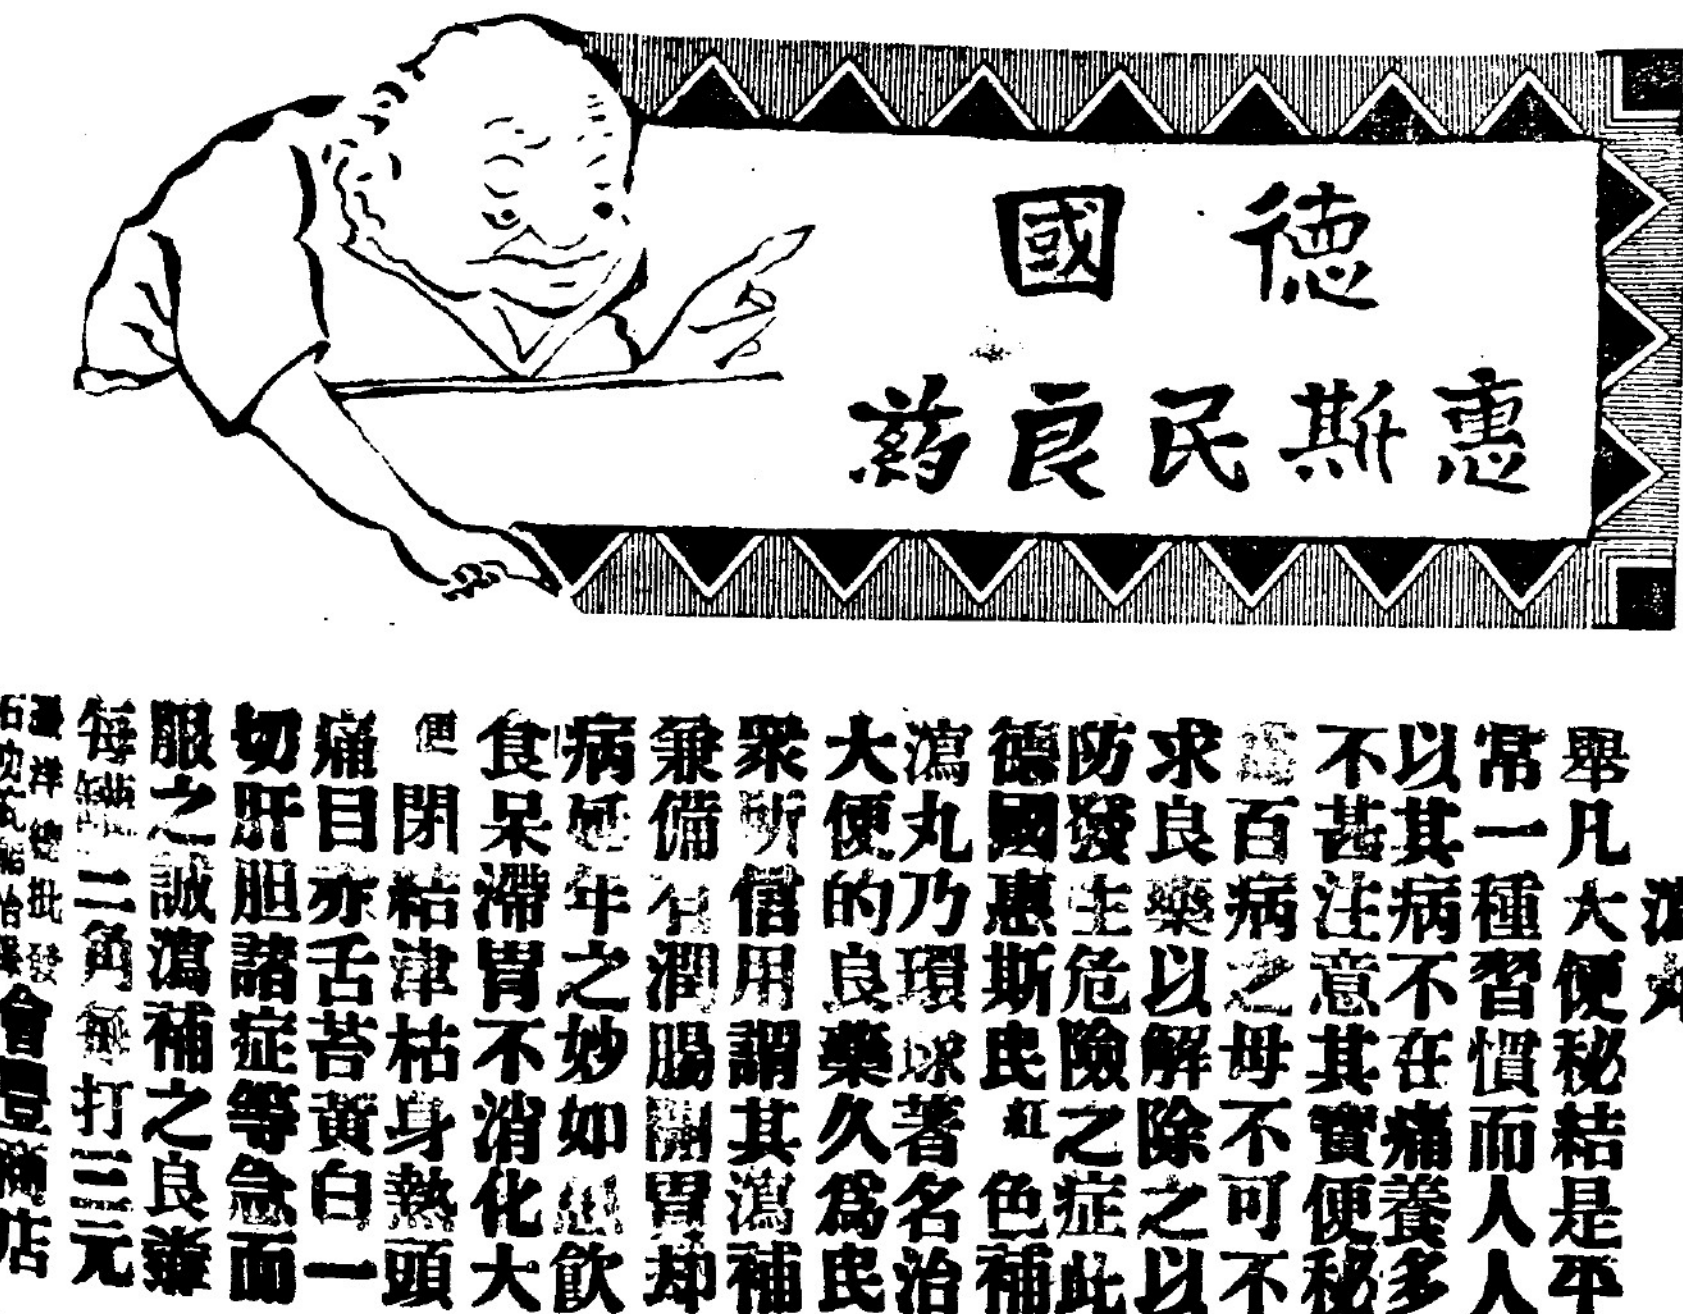 德國
惠斯民良药
瀉丸
舉凡大便秘結是平
常一種習慣而人人
以其病不在痛養多
不甚注意其實便秘
百病之母不可不
求良藥以解除之以
防發生危險之症此
德國惠斯民紅色補
瀉丸乃環球著名治
大便的良藥久爲民
衆所信用謂其瀉補
兼備有潤腸開胃却
病延年之妙如飲
食呆滯胃不消化大
便閉結津枯身熱頭
痛目赤舌苔黃白一
切肝胆諸症等急而
服之誠瀉補之良藥
每罐二角每打二元
洋總批發
石叻
會豐葯店